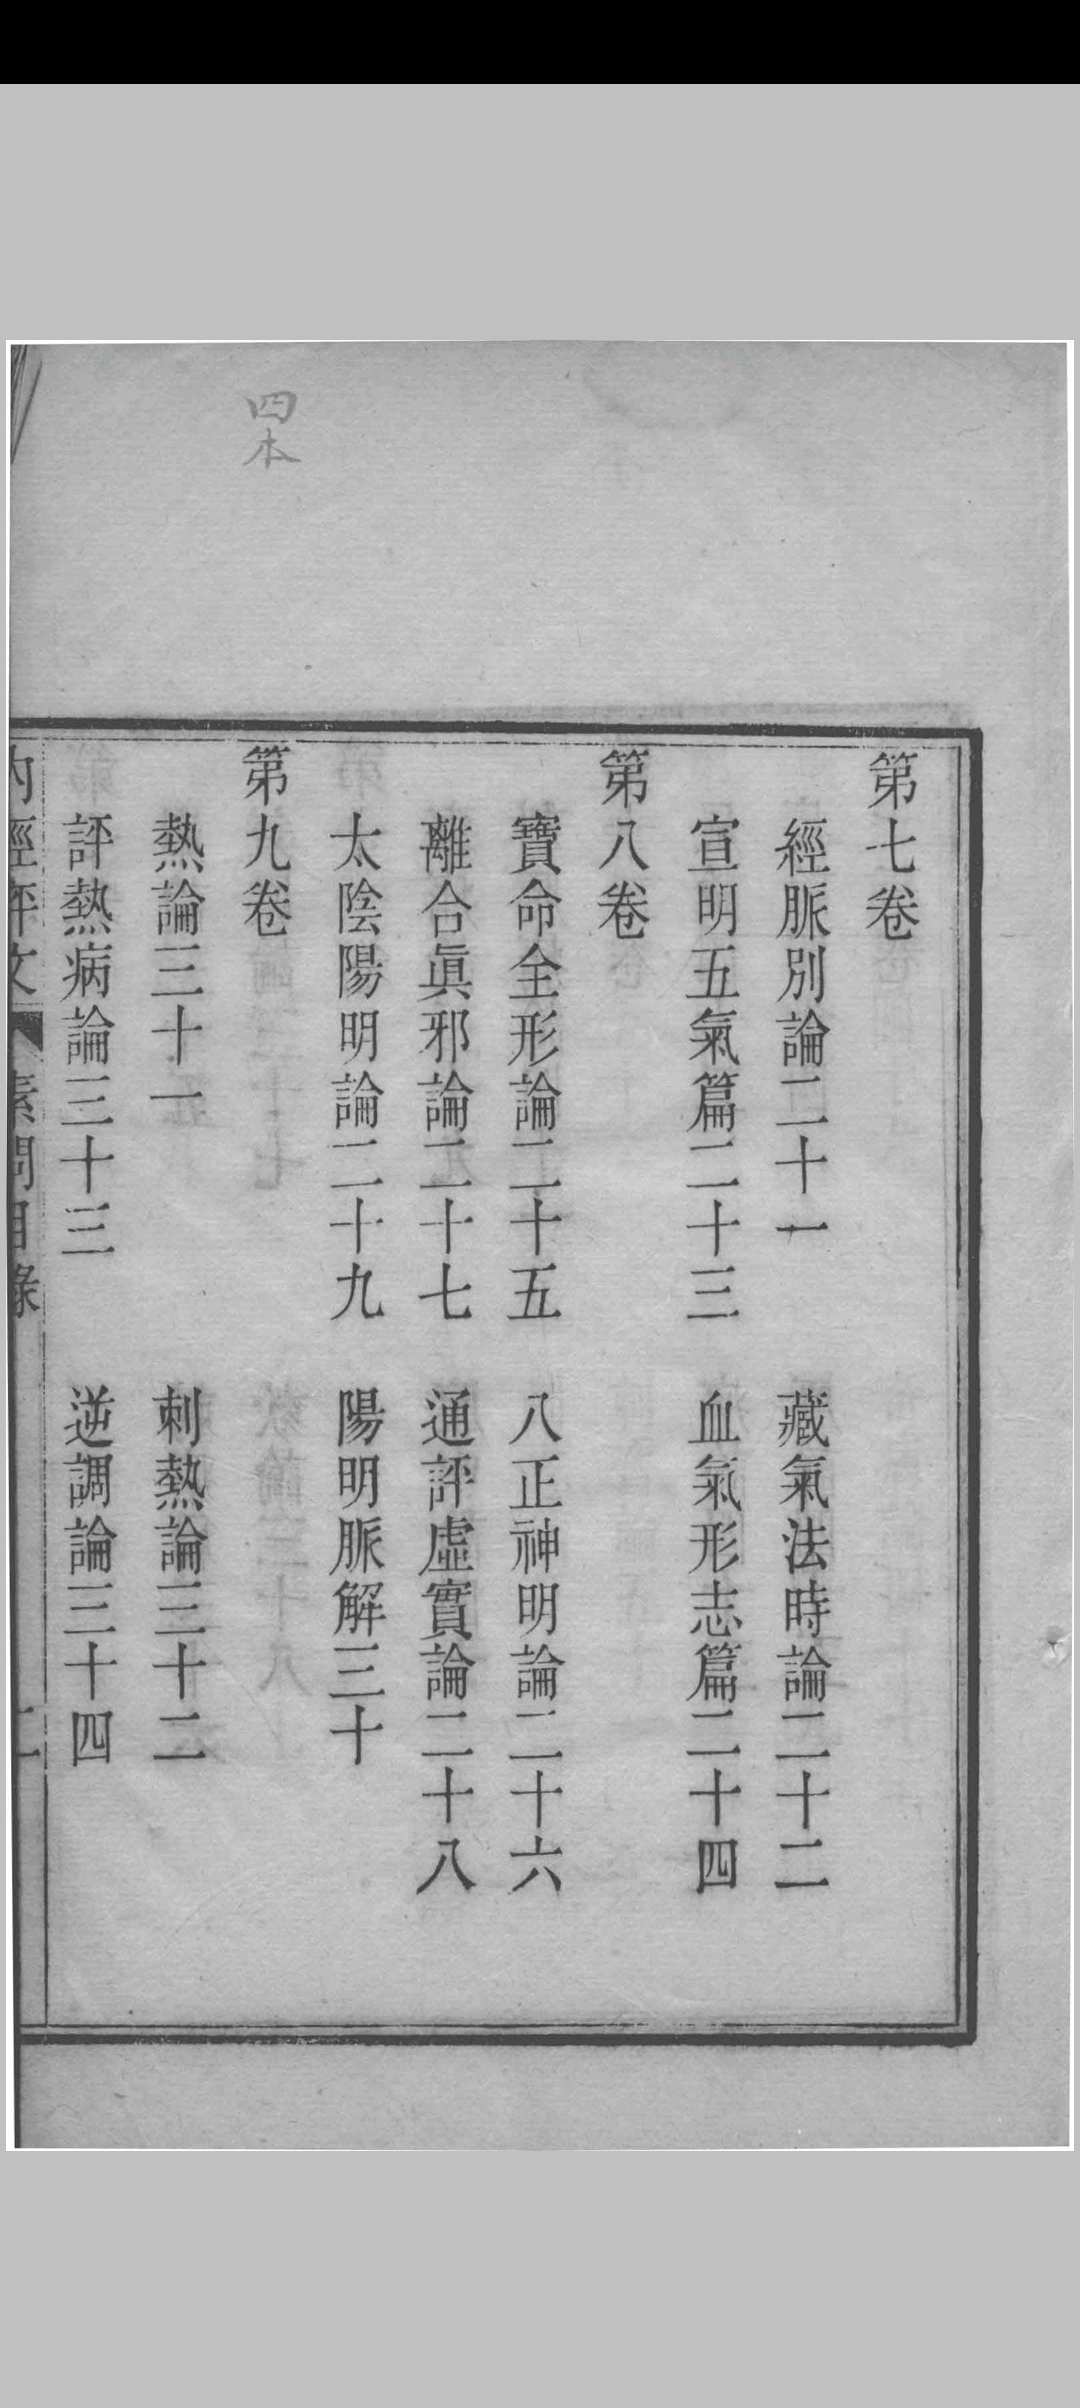 四本
第七卷
經脈別論二十一 藏氣法時論二十二
宣明五氣篇二十三 血氣形志篇二十四
第八卷
寶命全形論二十五 八正神明論二十六
離合眞邪論二十七 通評虛實論二十八
太陰陽明論二十九 陽明脈解三十
第九卷
熱論三十一 刺熱論三十二
評熱病論三十三 逆調論三十四
內經評文 素問目錄 二